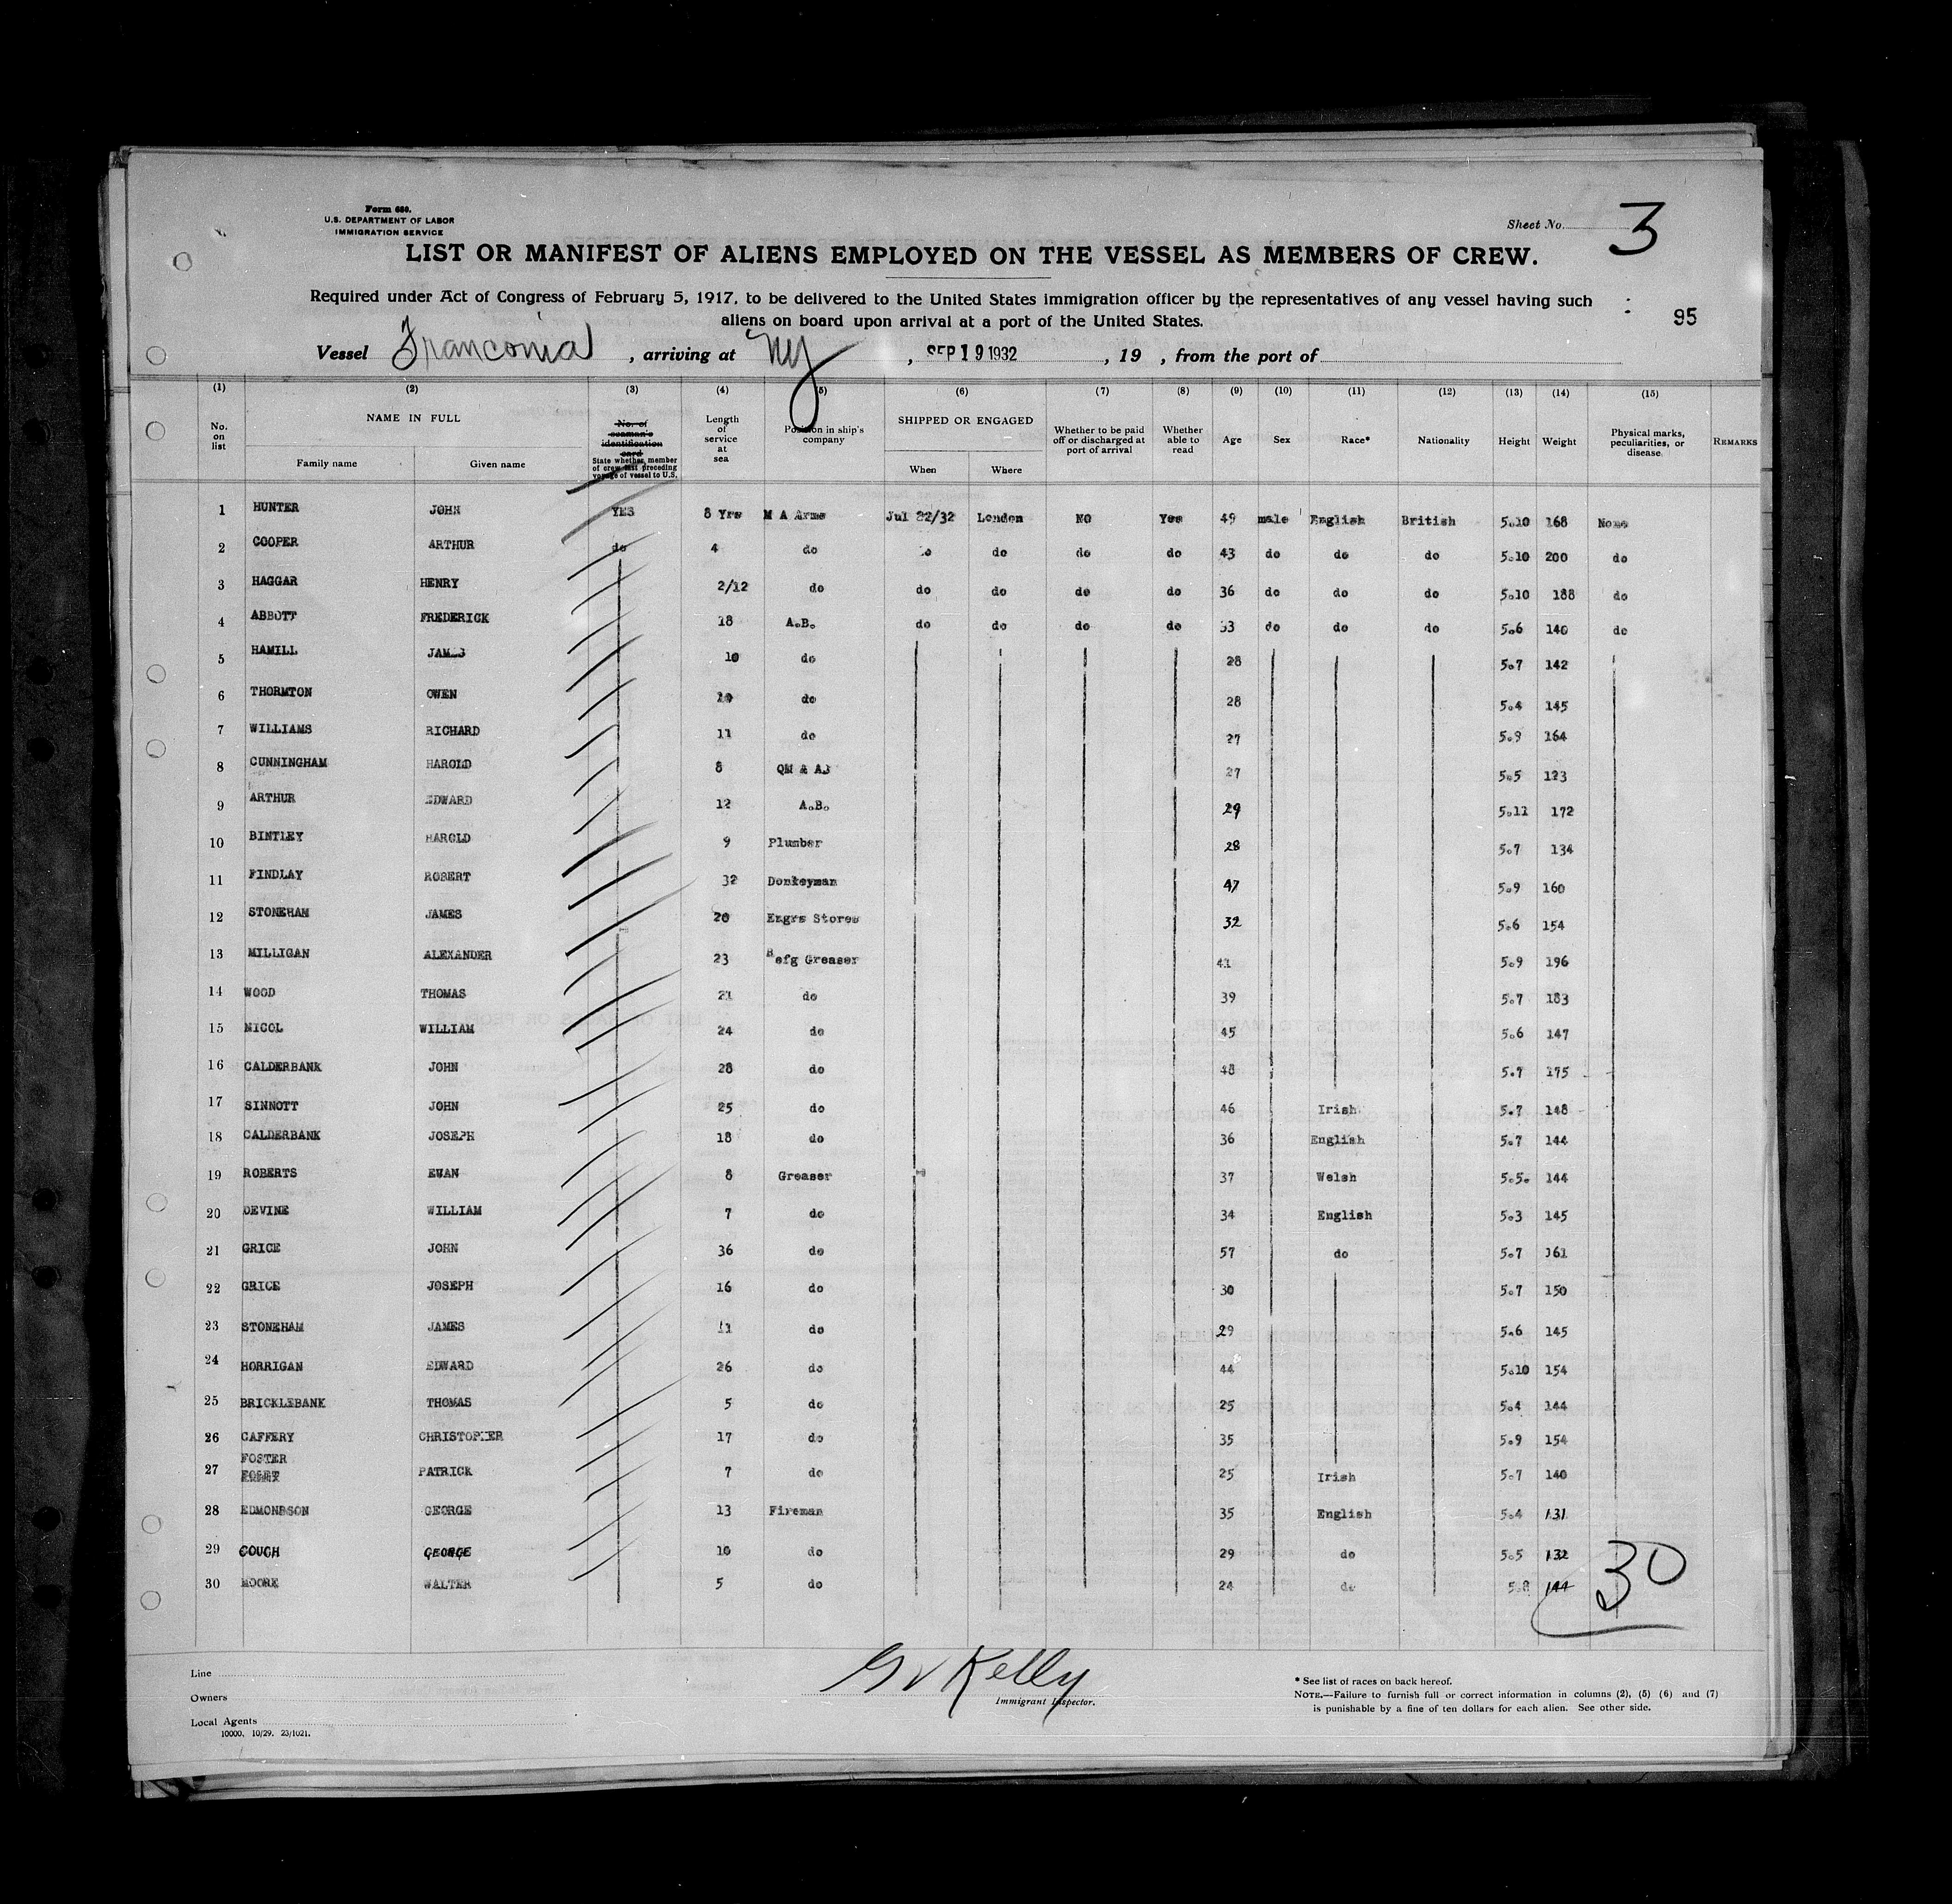 Form 680.
U.S. DEPARTMENT OF LABOR
IMMIGRATION SERVICE
Sheet No. 3
LIST OR MANIFEST OF ALIENS EMPLOYED ON THE VESSEL AS MEMBERS OF CREW.
Required under Act of Congress of February 5, 1917, to be delivered to the United States immigration officer by the representatives of any vessel having such
aliens on board upon arrival at a port of the United States.
95
Vessel Franconia , arriving at NY , SEP 19 1932 , 19 , from the port of
(1) (2) (3) (4) (5) (6) (7) (8) (9) (10) (11) (12) (13) (14) (15)
No. on list NAME IN FULL Family name Given name No. of seaman's identification card State whether member of crew last preceding voyage of vessel to U.S. Length of service at sea Position in ship's company SHIPPED OR ENGAGED When Where Whether to be paid off or discharged at port of arrival Whether able to read Age Sex Race* Nationality Height Weight Physical marks, peculiarities, or disease. REMARKS
1 HUNTER JOHN YES 8 Yrs M A Arms Jul /32 London NO Yes 49 male English British 5.10 168 None
2 COOPER ARTHUR do 4 do do do do do 43 do do do 5.10 200 do
3 HAGGAR HENRY 2/12 do do do do do 36 do do do 5.10 188 do
4 ABBOTT FREDERICK 18 A.B. do do do do 33 do do do 5.6 140 do
5 HAMILL JAMES 10 do 28 5.7 142
6 THORMTON OWEN do 28 5.4 145
7 WILLIAMS RICHARD 11 do 27 5.9 164
8 CUNNINGHAM HAROLD 8 QM & AB 27 5.5 123
9 ARTHUR EDWARD 12 A.B. 29 5.11 172
10 BINTLEY HAROLD 9 Plumber 28 5.7 134
11 FINDLAY ROBERT 32 Donkeyman 47 5.9 160
12 STONEHAM JAMES 20 Engrs Stores 32 5.6 154
13 MILLIGAN ALEXANDER 23 Refg Greaser 41 5.9 196
14 WOOD THOMAS 21 do 39 5.7 183
15 NICOL WILLIAM 24 do 45 5.6 147
16 CALDERBANK JOHN 28 do 48 5.7 175
17 SINNOTT JOHN 25 do 46 Irish 5.7 148
18 CALDERBANK JOSEPH 18 do 36 English 5.7 144
19 ROBERTS EWAN 8 Greaser 37 Welsh 5.5. 144
20 DEVINE WILLIAM 7 do 34 English 5.3 145
21 GRICE JOHN 36 do 57 do 5.7 161
22 GRICE JOSEPH 16 do 30 5.7 150
23 STONEHAM JAMES 11 do 29 5.6 145
24 HORRIGAN EDWARD 26 do 44 5.10 154
25 BRICKLEBANK THOMAS 5 do 25 5.4 144
26 CAFFERY CHRISTOPHER 17 do 35 5.9 154
FOSTER
27 PATRICK 7 do 25 Irish 5.7 140
28 EDMONDSON GEORGE 13 Fireman 35 English 5.4 131
29 COUGH GEORGE 10 do 29 do 5.5 132
30 MOORE WALTER 5 do 24 do 5.8 144
30
G V Kelly
Immigrant Inspector.
Line
Owners
Local Agents
10000. 10/29. 23/1021.
* See list of races on back hereof.
NOTE.—Failure to furnish full or correct information in columns (2), (5) (6) and (7)
is punishable by a fine of ten dollars for each alien. See other side.